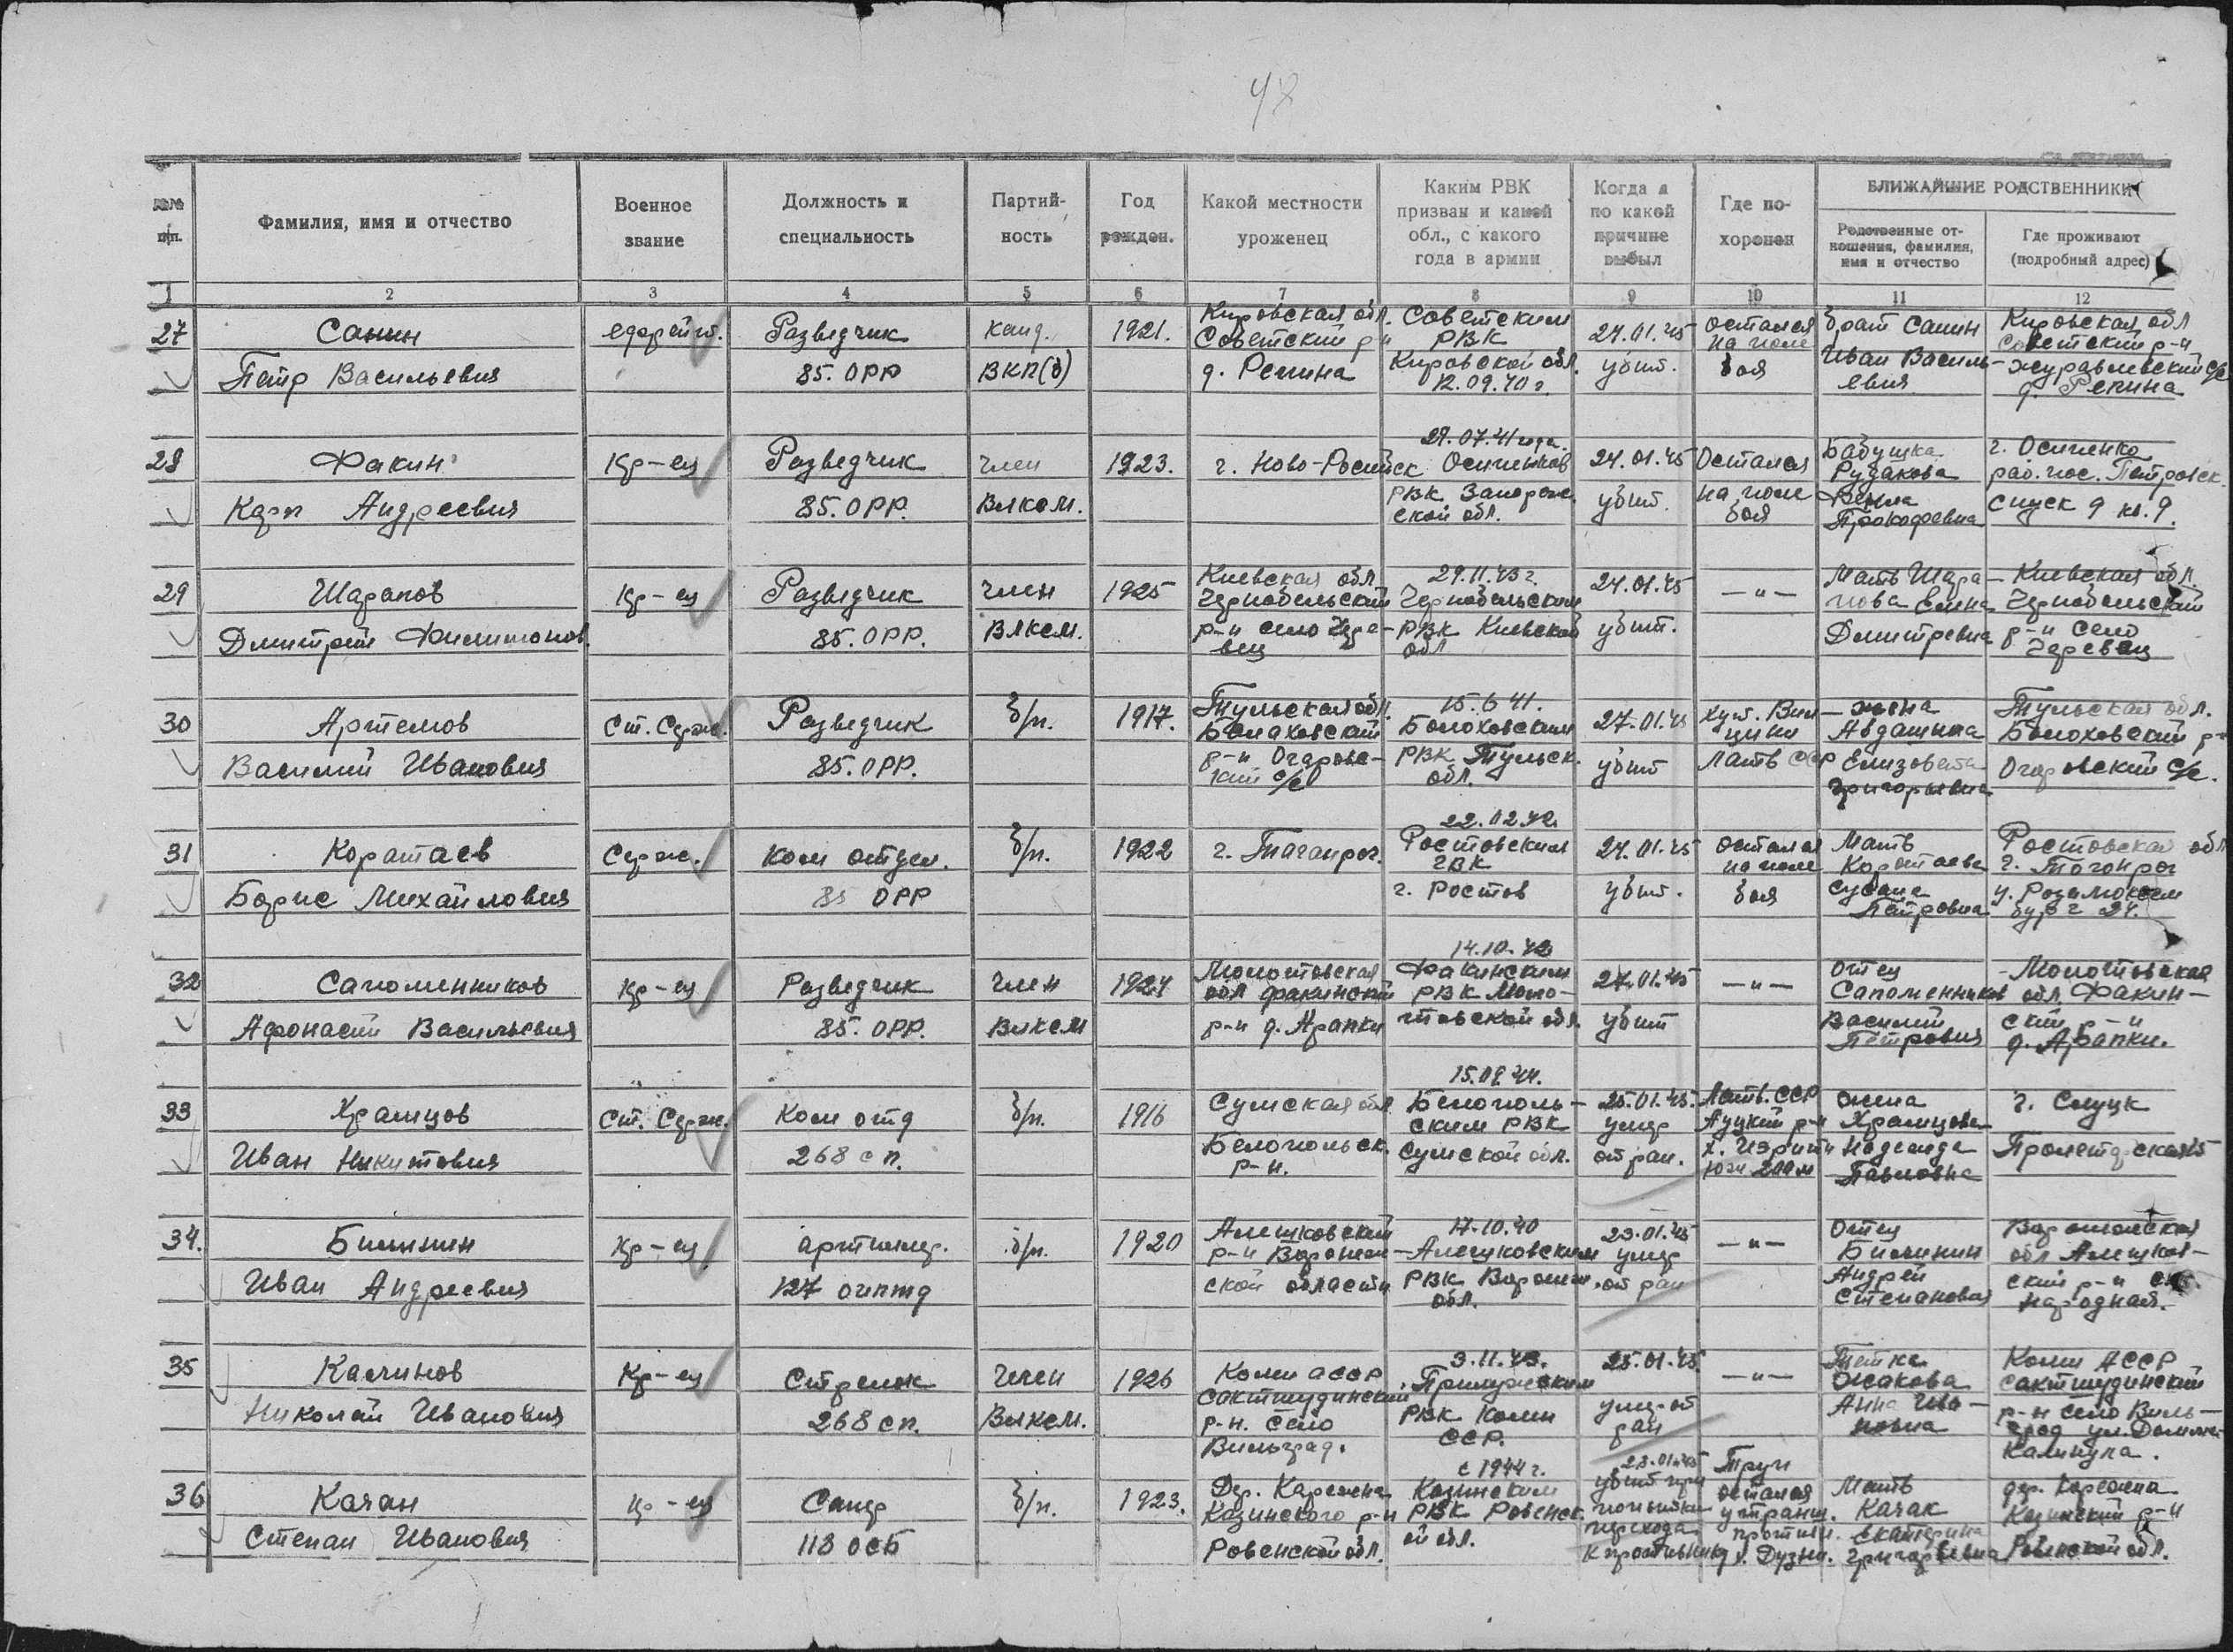 48
№№ п/п.
Фамилия, имя и отчество
Военное звание
Должность и специальность
Партийность
Год рожден.
Какой местности уроженец
Каким РВК призван и какой обл., с какого года в армии
Когда и по какой причине выбыл
Где похоронен
БЛИЖАЙШИЕ РОДСТВЕННИКИ
Родственные отношения, фамилия, имя и отчество
Где проживают (подробный адрес)
1 2 3 4 5 6 7 8 9 10 11 12
27 Санин ефрейт. Разведчик канд. 1921. Кировская обл. Советским 24.01.45 остался брат Санин Кировская обл
Советский р-н РВК на поле советский р-н
Петр Васильевич 85. ОРР ВКП(б) д. Репина Кировской обл. убит. боя Иван Василь- журавлевский с/с
12.09.40 г. евич д. Репина
29.07.41 года.
28 Факин Кр-ец Разведчик член 1923. г. Ново-Росийск Осипенков 24.01.45 Остался Бабушка г. Осипенко
Рудакова раб. пос. Петровск.
Карп Андреевич 85. ОРР. Влксм. РВК Запорож. убит. на поле
ской обл. боя Прокофевна спуск 9 кв. 9.
29 Шарапов Кр-ец Разведчик член 1925 Киевская обл 29.11.43 г. 24.01.45 —"— Мать Шара- Киевская обл.
Чернобельский Чернобельским пова Елена Чернобельский
Дмитрий Филимонов. 85. ОРР. Влксм. р-н село Чере- РВК Киевской убит. Дмитревна р-н село
вец обл Черевец
30 Артемов Ст. Серж. Разведчик б/п. 1917. Тульская обл. 15.6 41. 27.01.45 хут. жена Тульская обл.
Болоховский Болоховским Авдашина Болоховский р-
Василий Иванович 85. ОРР. р-н Огаровс- РВК Тульск. убит Латв ССР Елизовета Огаровский с/с.
кий с/с обл. Григорьевна
22.02.42.
31 Коратаев Серж. Ком отдел. б/п. 1922 г. Таганрог. Ростовским 24.01.45 остался Мать Ростовская обл
ГВК на поле Коротаева г. Тогонрог
Борис Михайлович 85 ОРР г. Ростов убит. боя у. Розалюксем
Петровна бург 24.
14.10.42
32 Сапоженников Кр-ец Разведчик член 1924 Молотовская Факинским 27.01.45 —"— отец Молотовская
обл факинский РВК Моло- Сапоженников обл. Факин-
Афонасий Васильевич 85. ОРР. Влксм р-н д. Арапки товской обл. убит Василий ский р-н
Петрович д. Арапки.
33 Храмцов Ст. Серж. Ком отд б/п. 1916 Сумская обл Белополь- 25.01.45. Латв. ССР жена г. Слуцк
ским РВК умер Ауцкий р-н Храмцова
Иван Никитович 268 сп. Белопольск. Сумской обл. от ран. Надежда
р-н. юж. 200 м Павловна
34. Билинин Кр-ец артилер. б/п. 1920 Алешковский 17.10.40 23.01.45 —"— отец Воронежская
р-н Воронеж- Алешковским умер Билинин обл Алешков-
Иван Андреевич 127 оиптд ской области РВК Воронеж. от ран Андрей ский р-н
обл. Степанович народная.
35 Калинов Кр-ец Стрелок член 1926 Коми асср 3.11.43. 25.01.45 —"— Тетка Коми АССР
сактшудинский Ожакова сактшудинский
Николай Иванович 268 сп. Влксм. р-н. село РВК Коми умер от Анна Ива- р-н село Виль-
Вильград. ССР. ран новна
Калинула.
с 1944 г. 23.01.45 Труп
36 Качан кр-ец Сапер б/п. 1923. Дер. Каролена Козинским убит при остался Мать дер. Королена
Козинского р-н РВК Ровенск. попытки у транш. Качак Козинский р-н
Степан Иванович 118 ОСБ Ровенской обл. ой обл. перехода против. Екатерина
к противнику Григорьевна Ровенской обл.